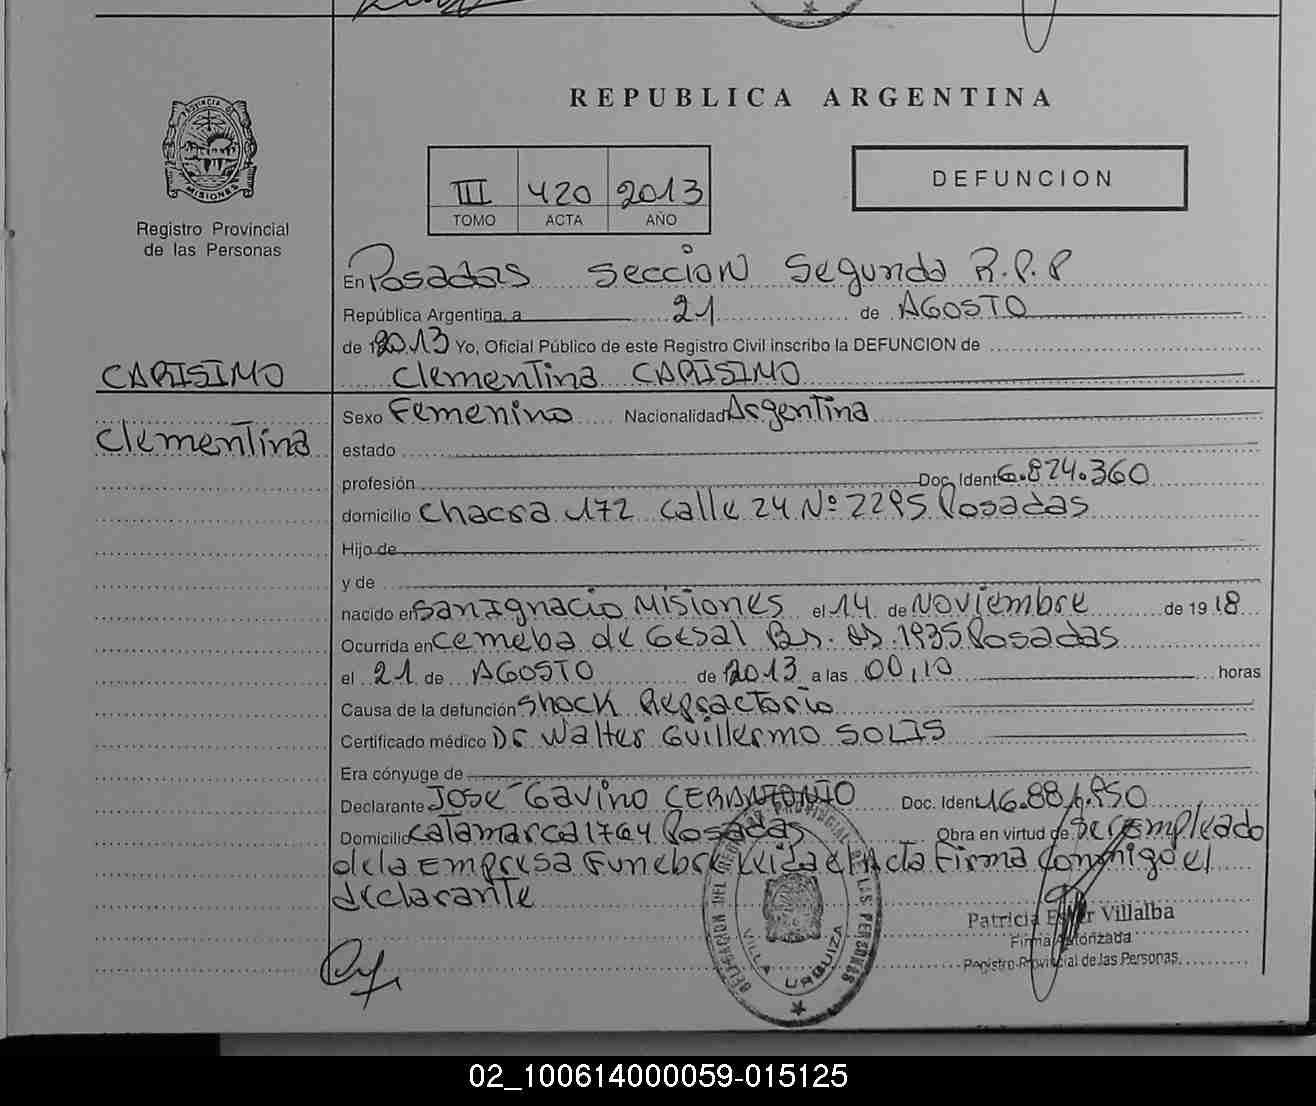 REPUBLICA ARGENTINA
PROVINCIA DE
MISIONES
Registro Provincial
de las Personas
III 420 2013
TOMO ACTA AÑO
DEFUNCION
En Posadas seccion Segunda R.P.P
República Argentina, a 21 de AGOSTO
de 2013 Yo, Oficial Público de este Registro Civil inscribo la DEFUNCION de
CARISIMO
Clementina CARISIMO
Clementina
Sexo Femenino Nacionalidad Argentina
estado
profesión Doc. Ident 6.824.360
domicilio chacra 172 calle 24 Nº 2295 Posadas
Hijo de
y de
nacido en San Ignacio Misiones el 14 de Noviembre de 19 18
Ocurrida en cemeba de Gesal Bs. As. 1935 Posadas
el 21 de AGOSTO de 2013 a las 00,10 horas
Causa de la defunción shock Refractorio
Certificado médico Dr Walter Guillermo SOLIS
Era cónyuge de
Declarante José Gavino CERANTONIO Doc. Ident 16.88
Domicilio catamarca 1764 Posadas Obra en virtud de ser empleado
de la Empresa Funebre Leida el Acta Firma conmigo el
declarante
DELEGACION DEL REGISTRO PROVINCIAL DE LAS PERSONAS
VILLA URQUIZA
Patricia Villalba
Firma Autorizada
Registro Provincial de las Personas
02_100614000059-015125